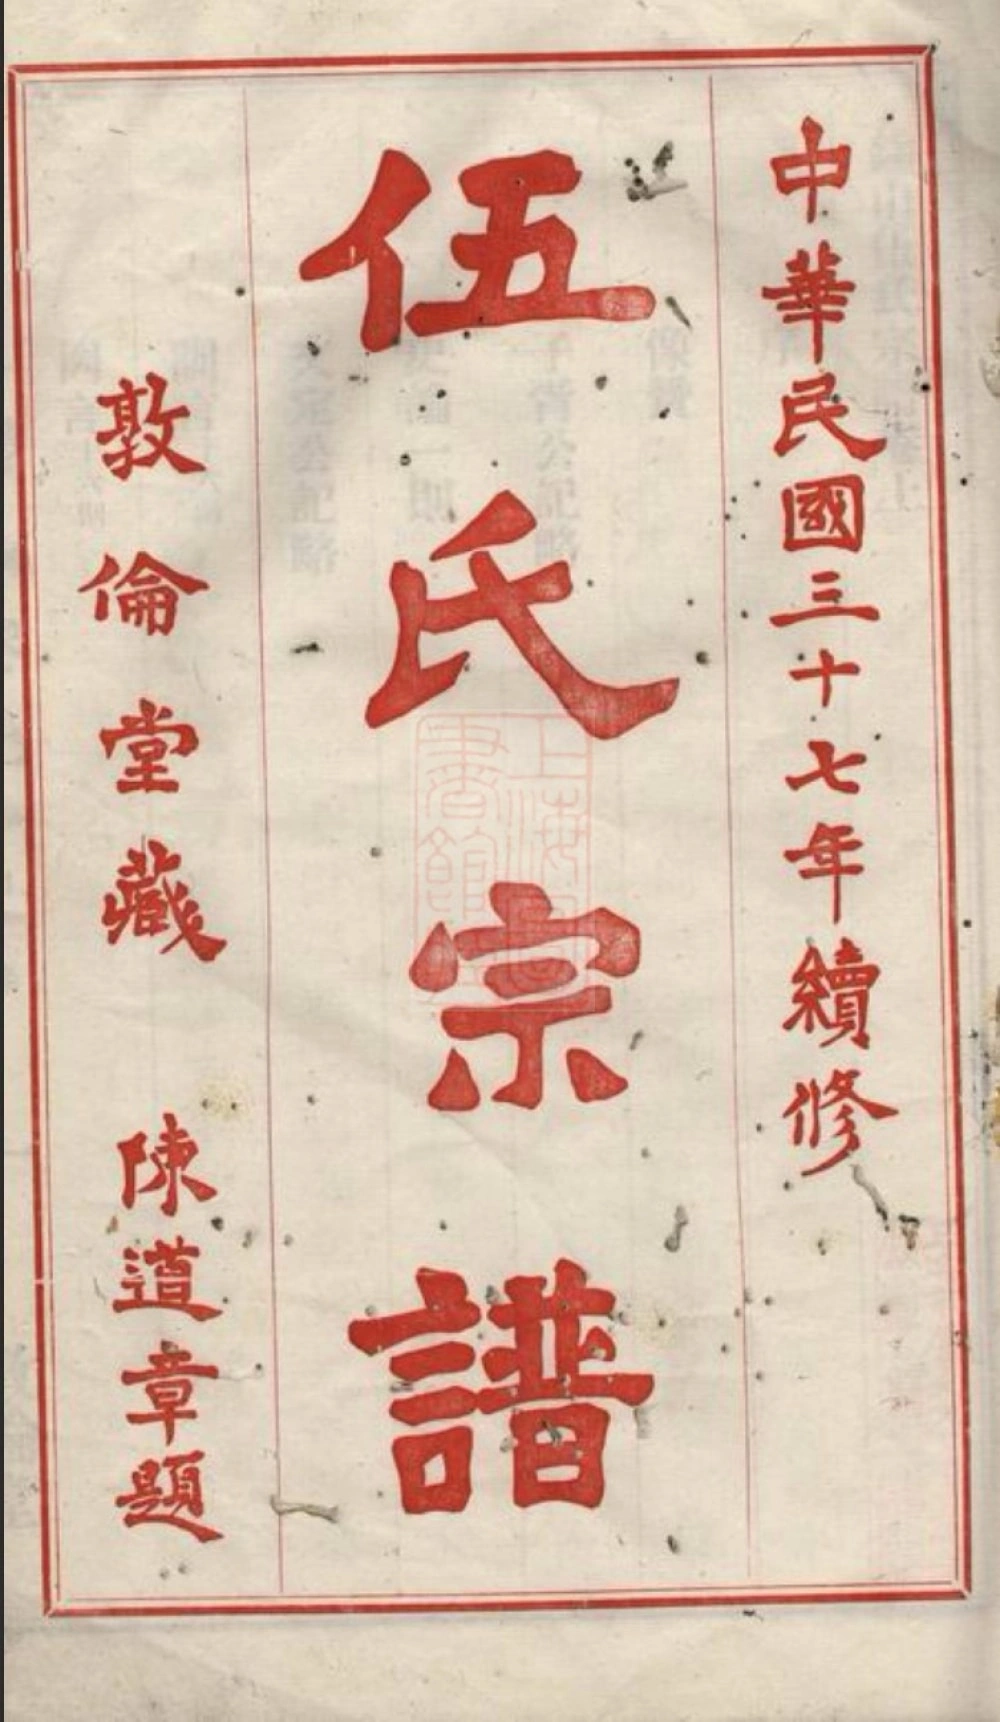 中華民國三十七年續修
伍氏宗譜
敦倫堂藏 陳道章題
上海圖書館藏